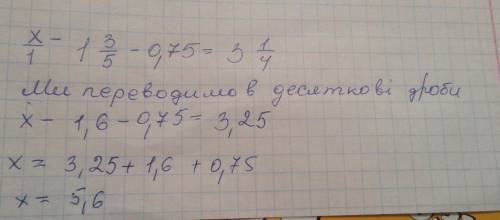 x/1 - 1 3/5 - 0,75 = 3 1/4
Ми переводимо в десяткові дроби
x - 1,6 - 0,75 = 3,25
x = 3,25 + 1,6 + 0,75
x = 5,6